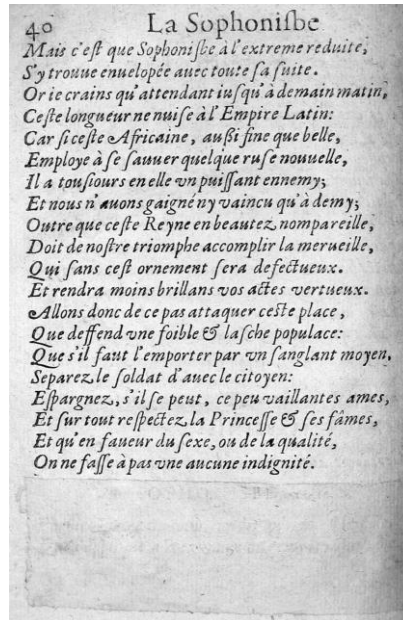 40 La Sophonisbe
Mais c'est que Sophonisbe à l'extreme reduite,
S'y trouue enuelopée auec toute sa suite.
Or ie crains qu'attendant iusqu'à demain matin,
Ceste longueur ne nuise à l'Empire Latin:
Car si ceste Africaine, außi fine que belle,
Employe à se sauuer quelque ruse nouuelle,
Il a tousiours en elle vn puissant ennemy;
Et nous n'auons gaigné ny vaincu qu'à demy;
Outre que ceste Reyne en beautez nompareille,
Doit de nostre triomphe accomplir la merueille,
Qui sans cest ornement sera defectueux.
Et rendra moins brillans vos actes vertueux.
Allons donc de ce pas attaquer ceste place,
Que deffend vne foible & lasche populace:
Que s'il faut l'emporter par vn sanglant moyen,
Separez le soldat d'auec le citoyen:
Espargnez, s'il se peut, ce peu vaillantes ames,
Et sur tout respectez la Princesse & ses fâmes,
Et qu'en faueur du sexe, ou de la qualité,
On ne fasse à pas vne aucune indignité.